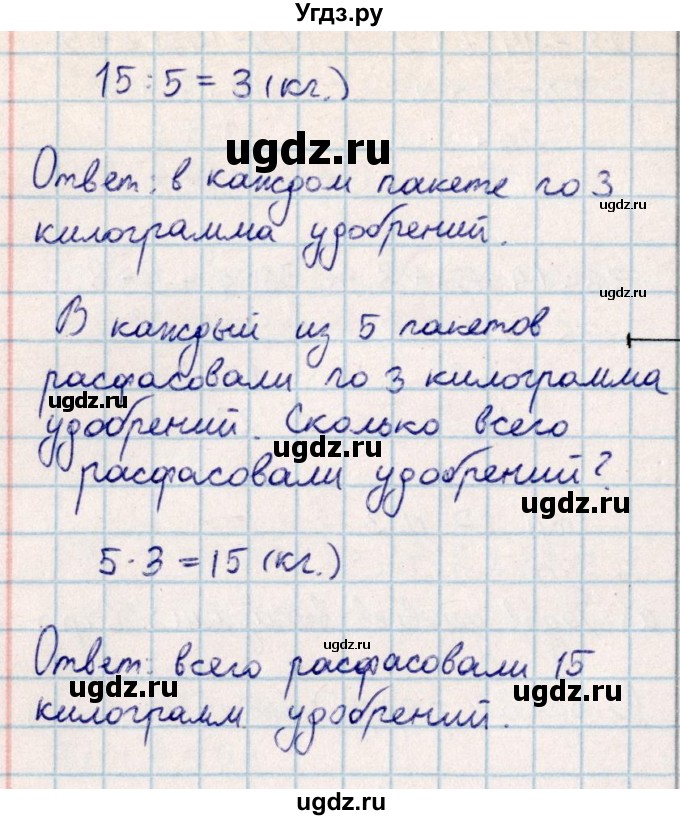 Угдз.ру
15:5=3 (кг.)
ugdz.ru
Ответ: в каждом пакете по 3
ugdz.ru
килограмма удобрений.
ugdz.ru
В каждый из 5 пакетов
расфасовали по 3 килограмма
ugdz.ru
удобрений. Сколько всего
ugdz.ru
расфасовали удобрений?
ugdz.ru
5·3=15 (кг.)
ugdz.ru
Ответ: всего расфасовали 15
ugdz.ru
ugdz.ru
килограмм удобрений.
ugdz.ru